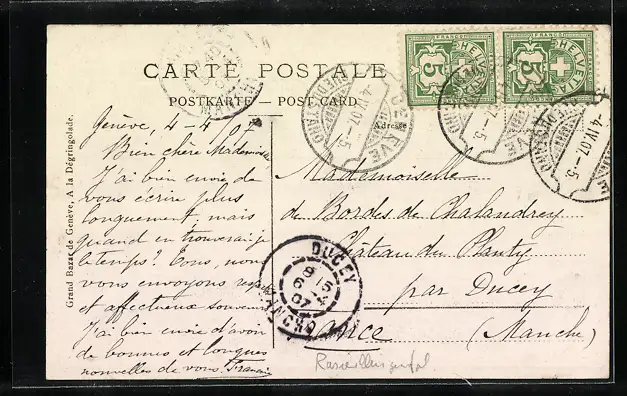 CARTE POSTALE
POSTKARTE — POST CARD
Adresse
Grand Bazar de Genève, A la Dégringolade.
FRANCO
HELVETIA
5
FRANCO
HELVETIA
5
GENÈVE
-4.IV.07.-5
-4.IV.07.-5
Genève, 4-4-07
Bien chère Mademoiselle
J'ai bien envie de
vous écrire plus
longuement, mais
quand en trouverai-je
le temps? Tous, nous
vous envoyons
et affectueux
J'ai bien envie d'avoir
de bonnes et longues
nouvelles de vous.
Mademoiselle
de Bordes de Chalandrey
Château du Planty
par Ducey
(Manche)
DUCEY
MANCHE